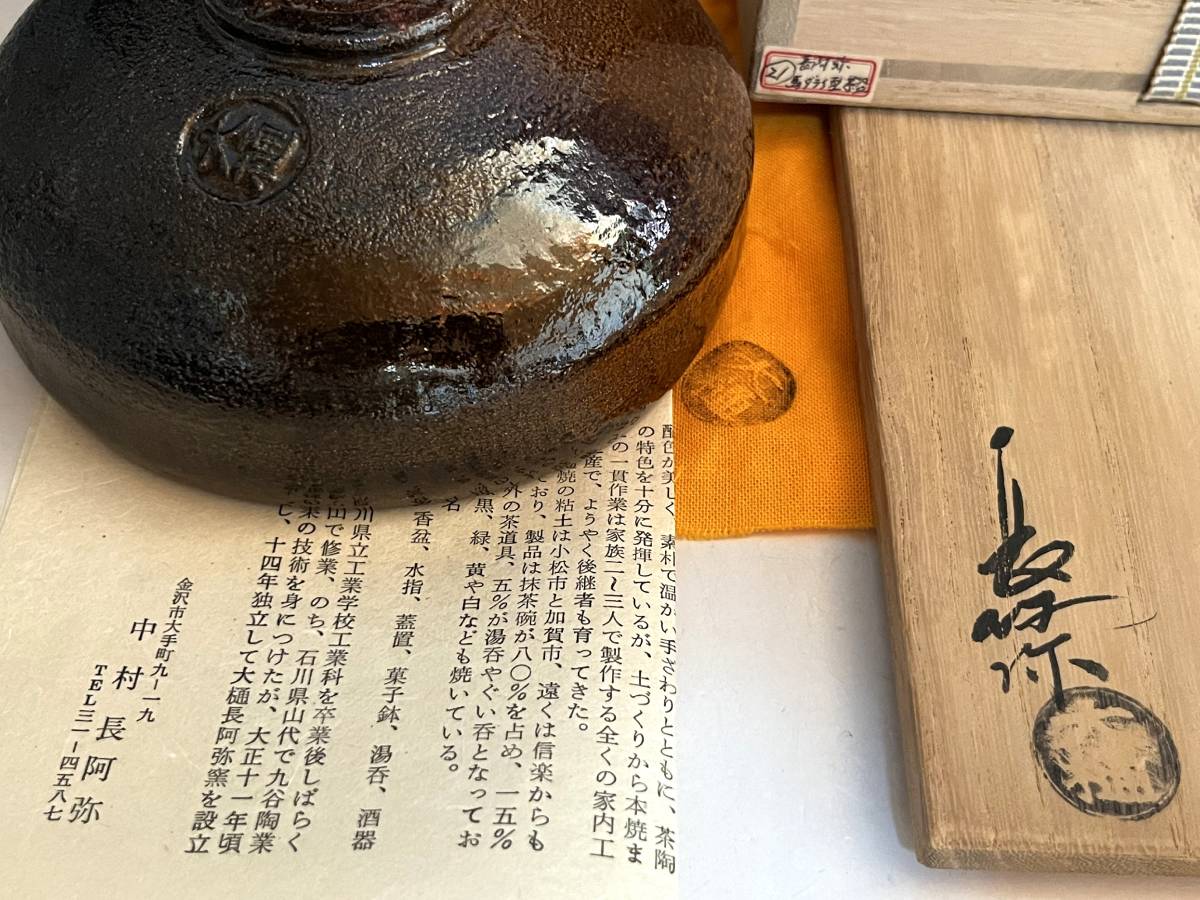 配色が美しく、素朴で温かい手ざわりとともに、茶陶
の特色を十分に発揮しているが、土づくりから本焼ま
の一貫作業は家族二〜三人で製作する全くの家内工
産で、ようやく後継者も育ってきた。
焼の粘土は小松市と加賀市、遠くは信楽からも
ており、製品は抹茶碗が八〇％を占め、一五％
外の茶道具、五％が湯呑やぐい呑となってお
黒、緑、黄や白なども焼いている。
名
香盆、水指、蓋置、菓子鉢、湯呑、酒器
川県立工業学校工業科を卒業後しばらく
で修業、のち、石川県山代で九谷陶業
の技術を身につけたが、大正十一年頃
し、十四年独立して大樋長阿弥窯を設立
金沢市大手町九ー一九
中村長阿弥
TEL三一ー四五八七
長阿弥